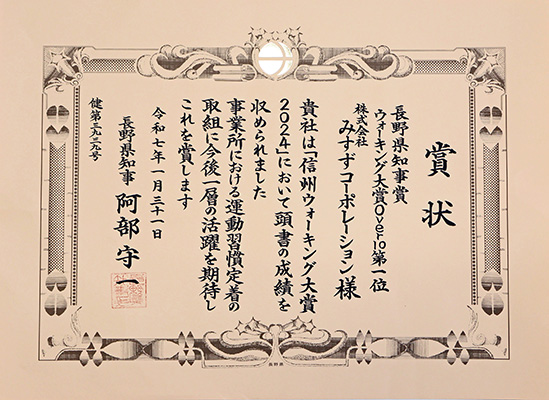 賞状
長野県知事賞
ウォーキング大賞Over10第一位
株式会社
みすずコーポレーション 様
貴社は「信州ウォーキング大賞
2024」において頭書の成績を
収められました
事業所における運動習慣定着の
取組に今後一層の活躍を期待し
これを賞します
令和七年一月三十一日
長野県知事 阿部守一
健第三九三九号
長野県